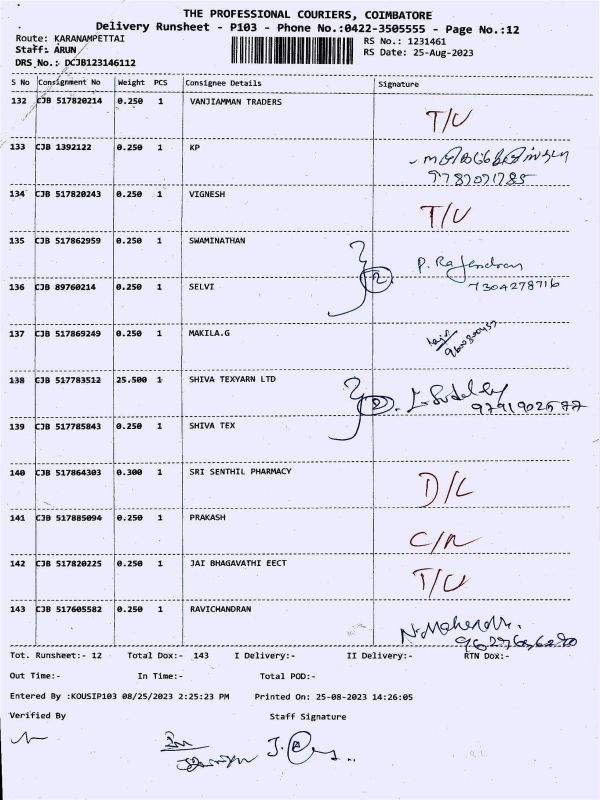 THE PROFESSIONAL COURIERS, COIMBATORE
Delivery Runsheet - P103 - Phone No.:0422-3505555 - Page No.:12
Route: KARANAMPETTAI
RS No.: 1231461
Staff: ARUN
RS Date: 25-Aug-2023
DRS_No.: DCJB123146112
S No Consignment No Weight PCS Consignee Details Signature
132 CJB 517820214 0.250 1 VANJIAMMAN TRADERS T/U
133 CJB 1392122 0.250 1 KP
134 CJB 517820243 0.250 1 VIGNESH T/U
135 CJB 517862959 0.250 1 SWAMINATHAN P. Rajendran
136 CJB 89760214 0.250 1 SELVI 7304278716
137 CJB 517869249 0.250 1 MAKILA.G
138 CJB 517783512 25.500 1 SHIVA TEXYARN LTD
139 CJB 517785843 0.250 1 SHIVA TEX
140 CJB 517864303 0.300 1 SRI SENTHIL PHARMACY D/L
141 CJB 517885094 0.250 1 PRAKASH C/R
142 CJB 517820225 0.250 1 JAI BHAGAVATHI EECT T/U
143 CJB 517605582 0.250 1 RAVICHANDRAN N. Mahendr.
Tot. Runsheet:- 12 Total Dox:- 143 I Delivery:- II Delivery:- RTN Dox:-
Out Time:- In Time:- Total POD:-
Entered By :KOUSIP103 08/25/2023 2:25:23 PM Printed On: 25-08-2023 14:26:05
Verified By Staff Signature